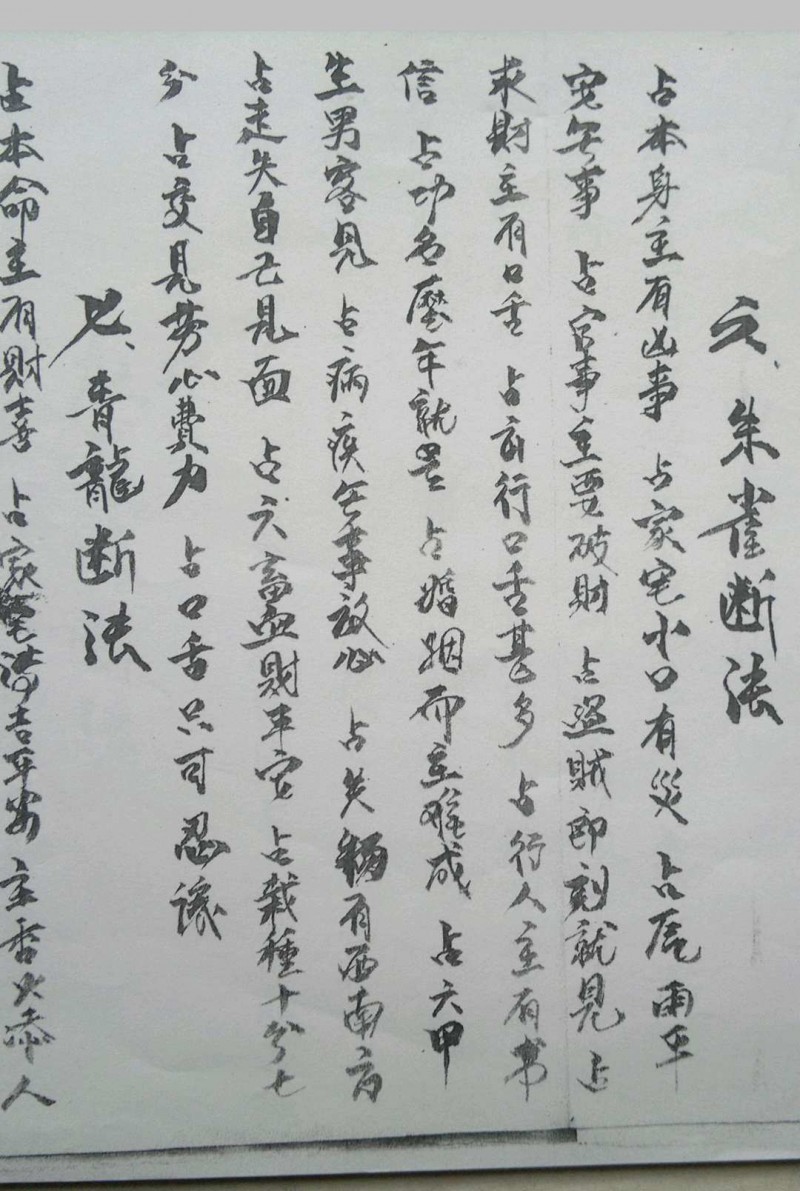 六、朱雀断法
占本身主有凶事 占家宅小口有災 占風雨平
安無事 占官事主要破財 占盗賊即刻就見 占
求財主有口舌 占出行口舌甚多 占行人主有書
信 占功名歷年就是 占婚姻而主难成 占六甲
生男客見 占病疾無事放心 占失物有西南方
占走失自己見面 占六畜血財平安 占栽種十分七
分 占交見劳心費力 占口舌只可忍讓
七、青龍断法
占本命主有財喜 占家宅吉平安 主香火添人